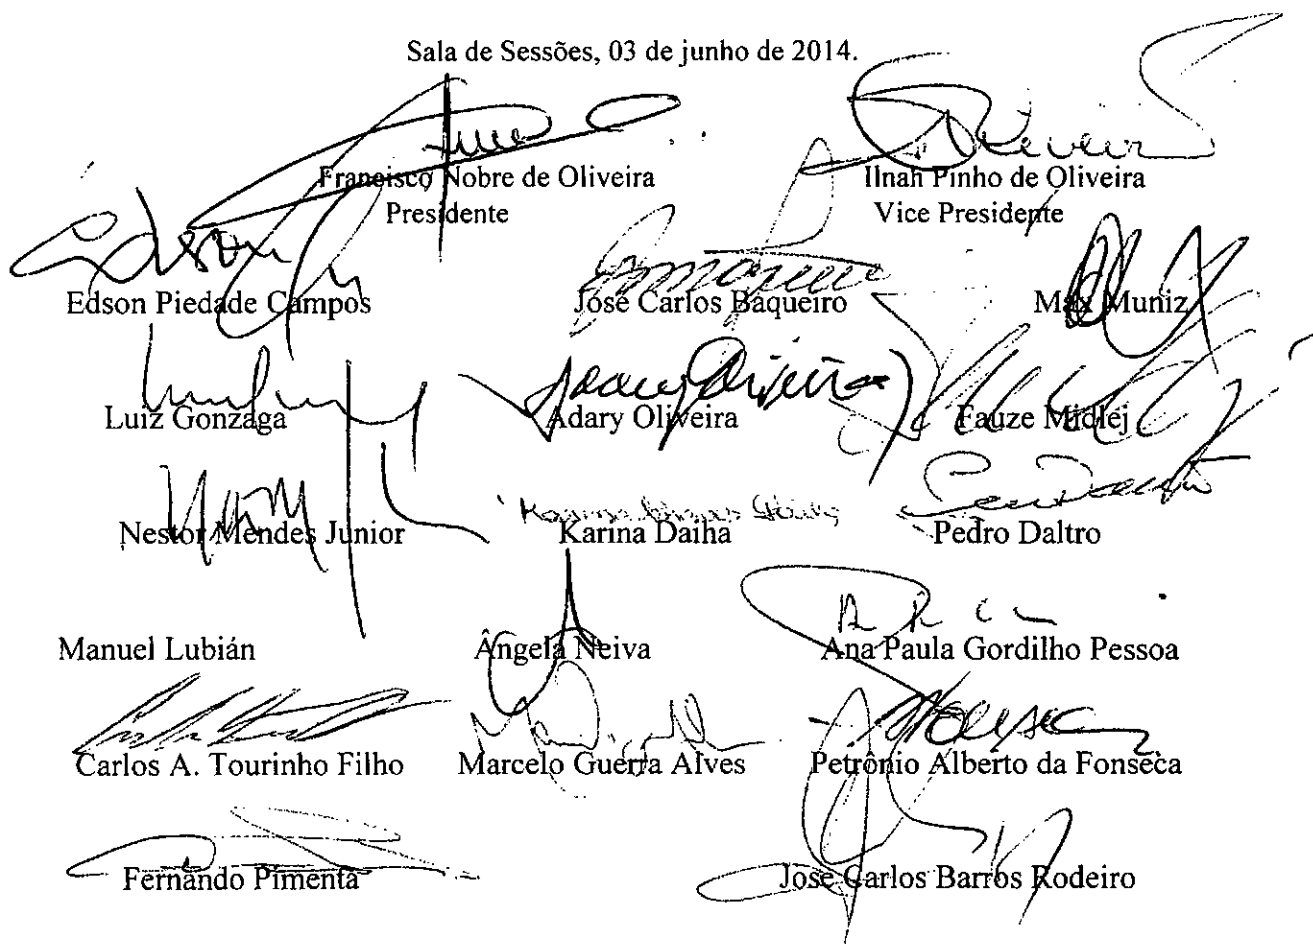 Sala de Sessões, 03 de junho de 2014.
Francisco Nobre de Oliveira Ilnah Pinho de Oliveira
Presidente Vice Presidente
Edson Piedade Campos José Carlos Baqueiro Max Muniz
Luiz Gonzaga Adary Oliveira Fauze Midlej
Nestor Mendes Junior Karina Daiha Pedro Daltro
Manuel Lubián Ângela Neiva Ana Paula Gordilho Pessoa
Carlos A. Tourinho Filho Marcelo Guerra Alves Petrônio Alberto da Fonseca
Fernando Pimenta José Carlos Barros Rodeiro